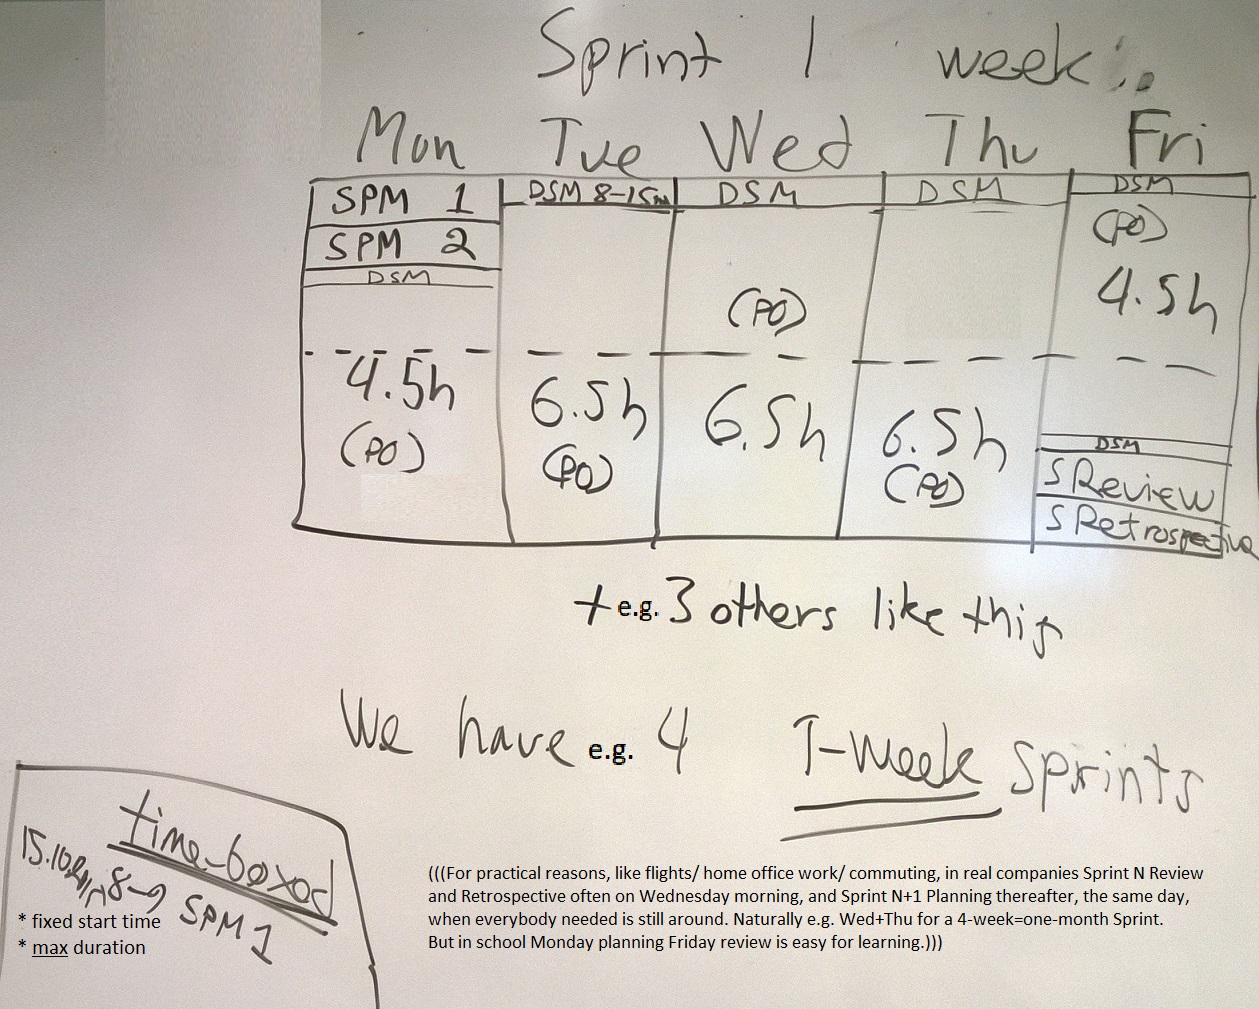 Sprint 1 week
Mon Tue Wed Thu Fri
SPM 1 DSM 8-15m DSM DSM DSM
SPM 2 (PO)
DSM 4.5h
(PO)
4.5h 6.5h 6.5h 6.5h
(PO) (PO) (PO) DSM
S Review
S Retrospective
+ e.g. 3 others like this
We have e.g. 4 1-week sprints
time-boxed
8→ SPM 1
* fixed start time
* max duration
(((For practical reasons, like flights/ home office work/ commuting, in real companies Sprint N Review
and Retrospective often on Wednesday morning, and Sprint N+1 Planning thereafter, the same day,
when everybody needed is still around. Naturally e.g. Wed+Thu for a 4-week=one-month Sprint.
But in school Monday planning Friday review is easy for learning.)))